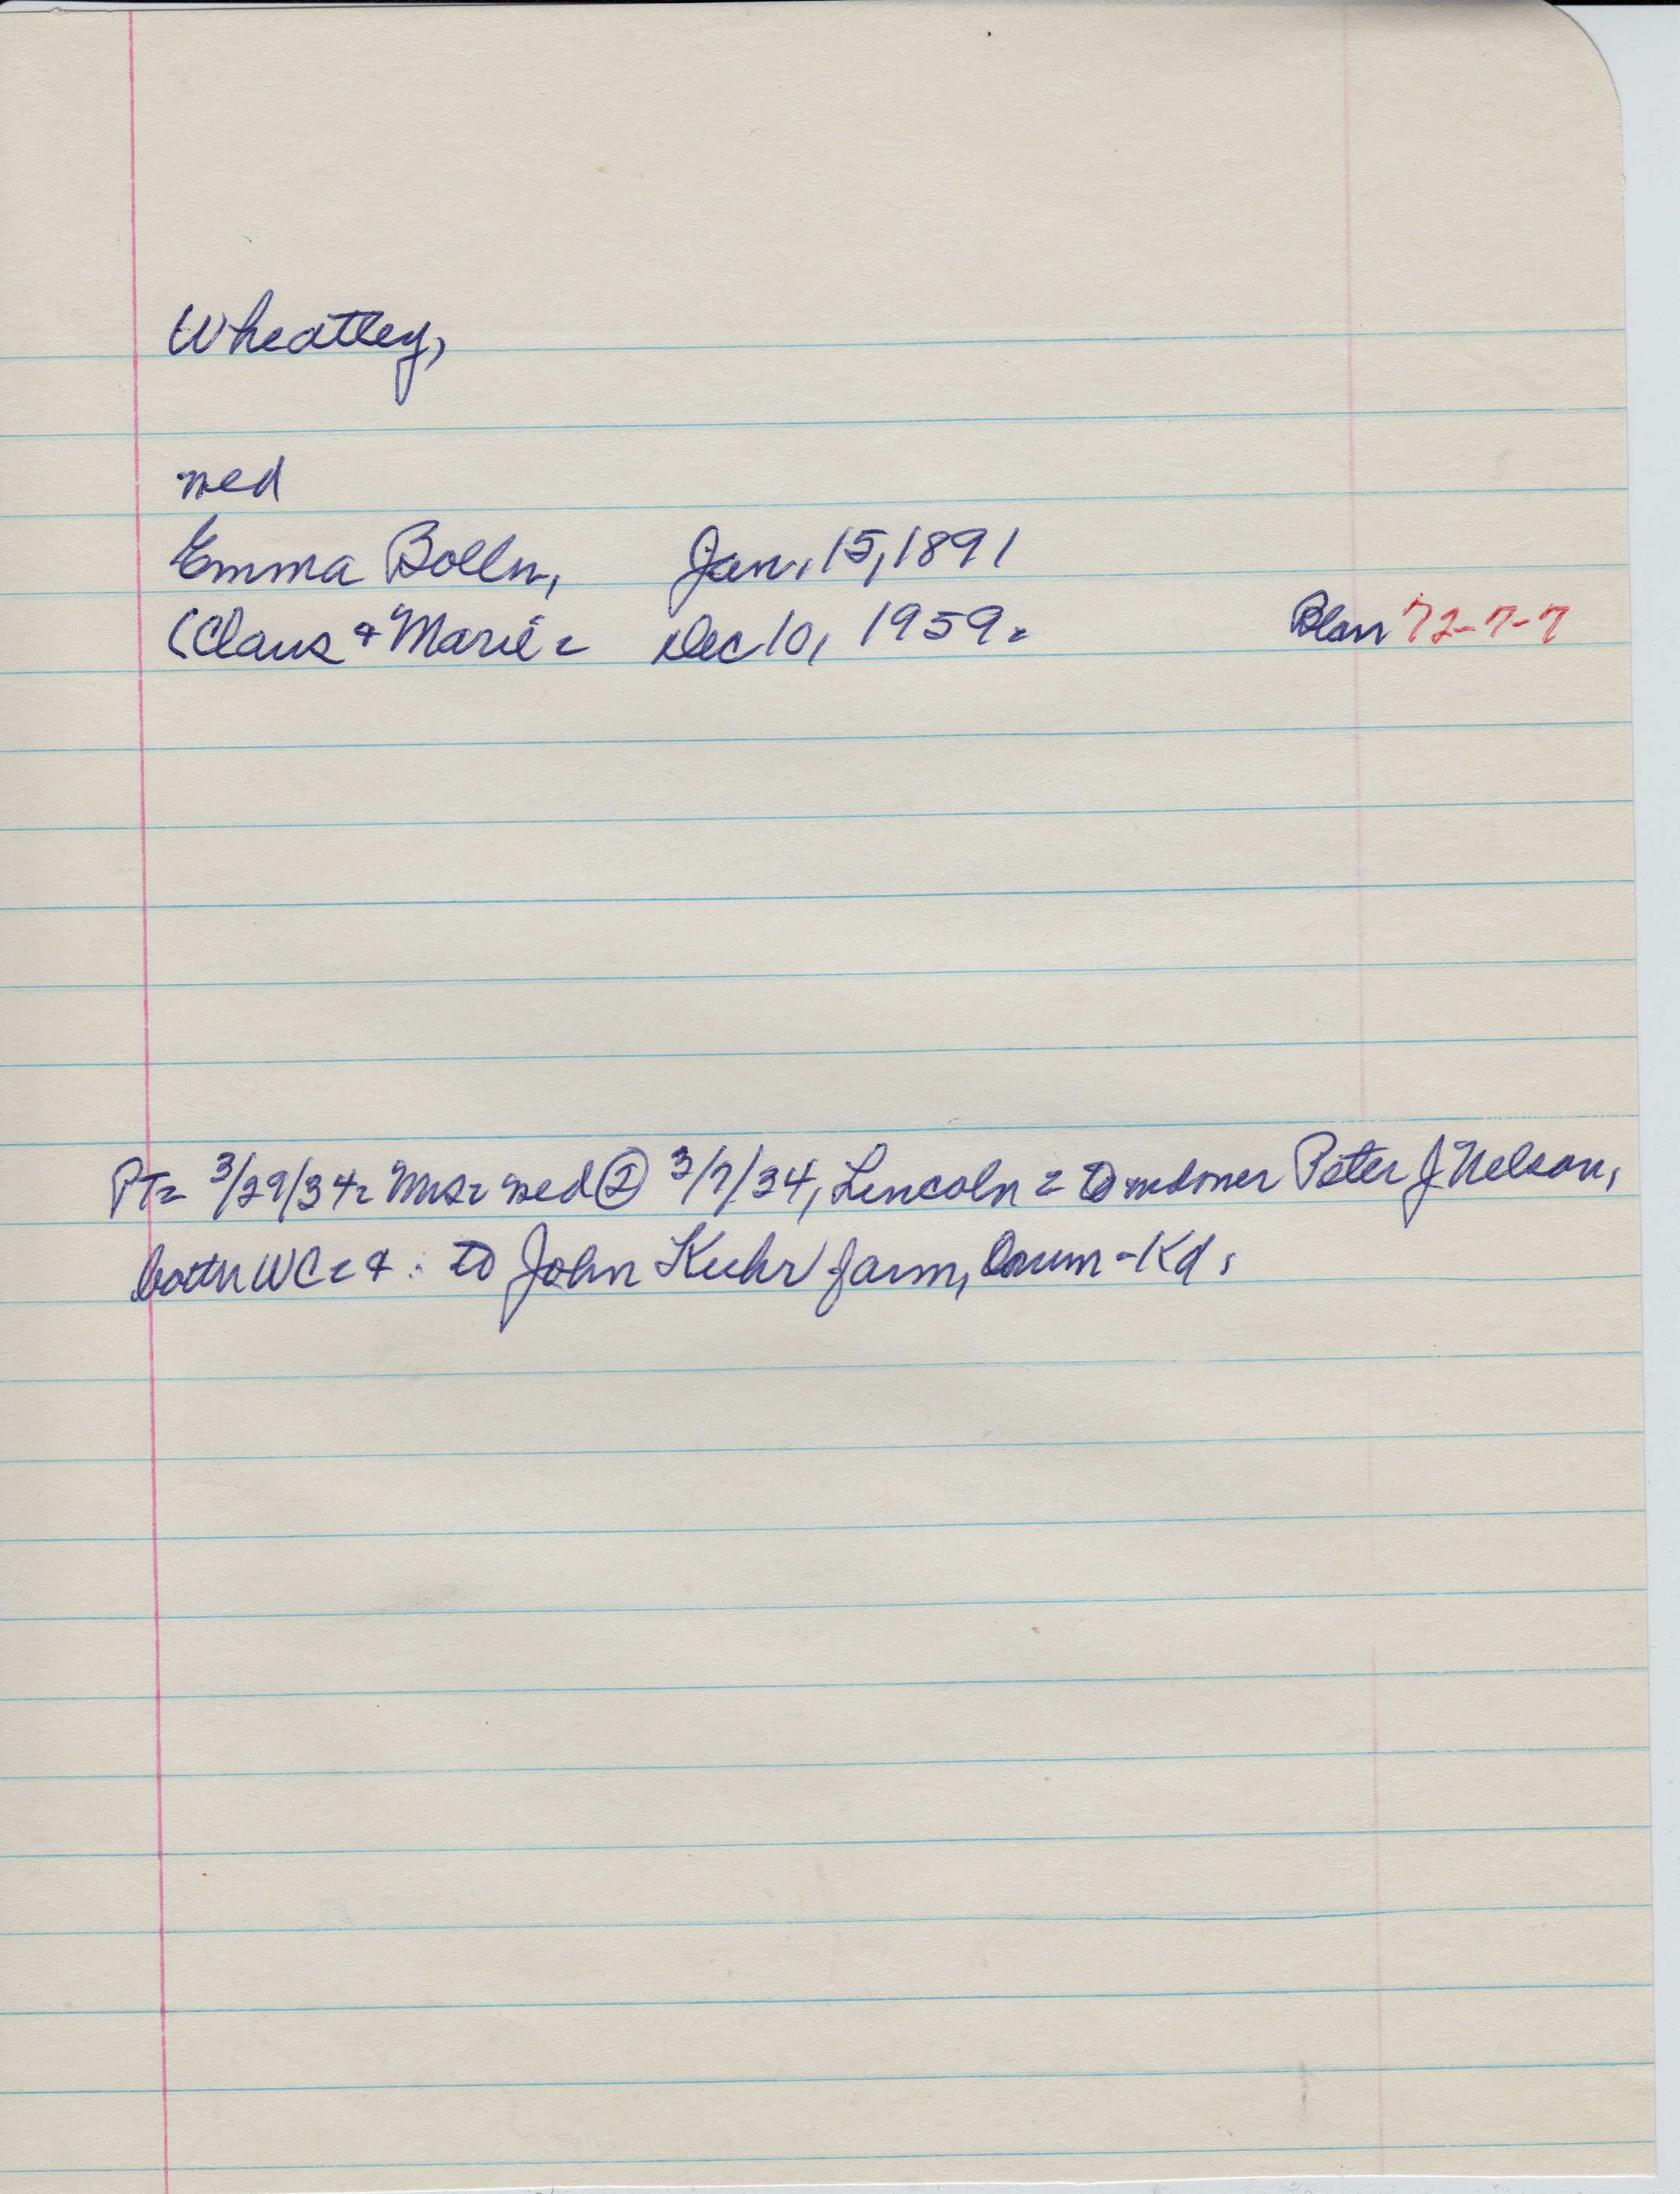 Wheatley,
med
Emma Bolln, Jan. 15, 1891
(Claus & Marie = Dec 10, 1959 = Blair 72-7-7
PT = 3/29/34 = Mrs = med ② 3/7/34, Lincoln = to Peter J Nelson,
both WC = & ∴ to John Kuhr farm, -Kd.